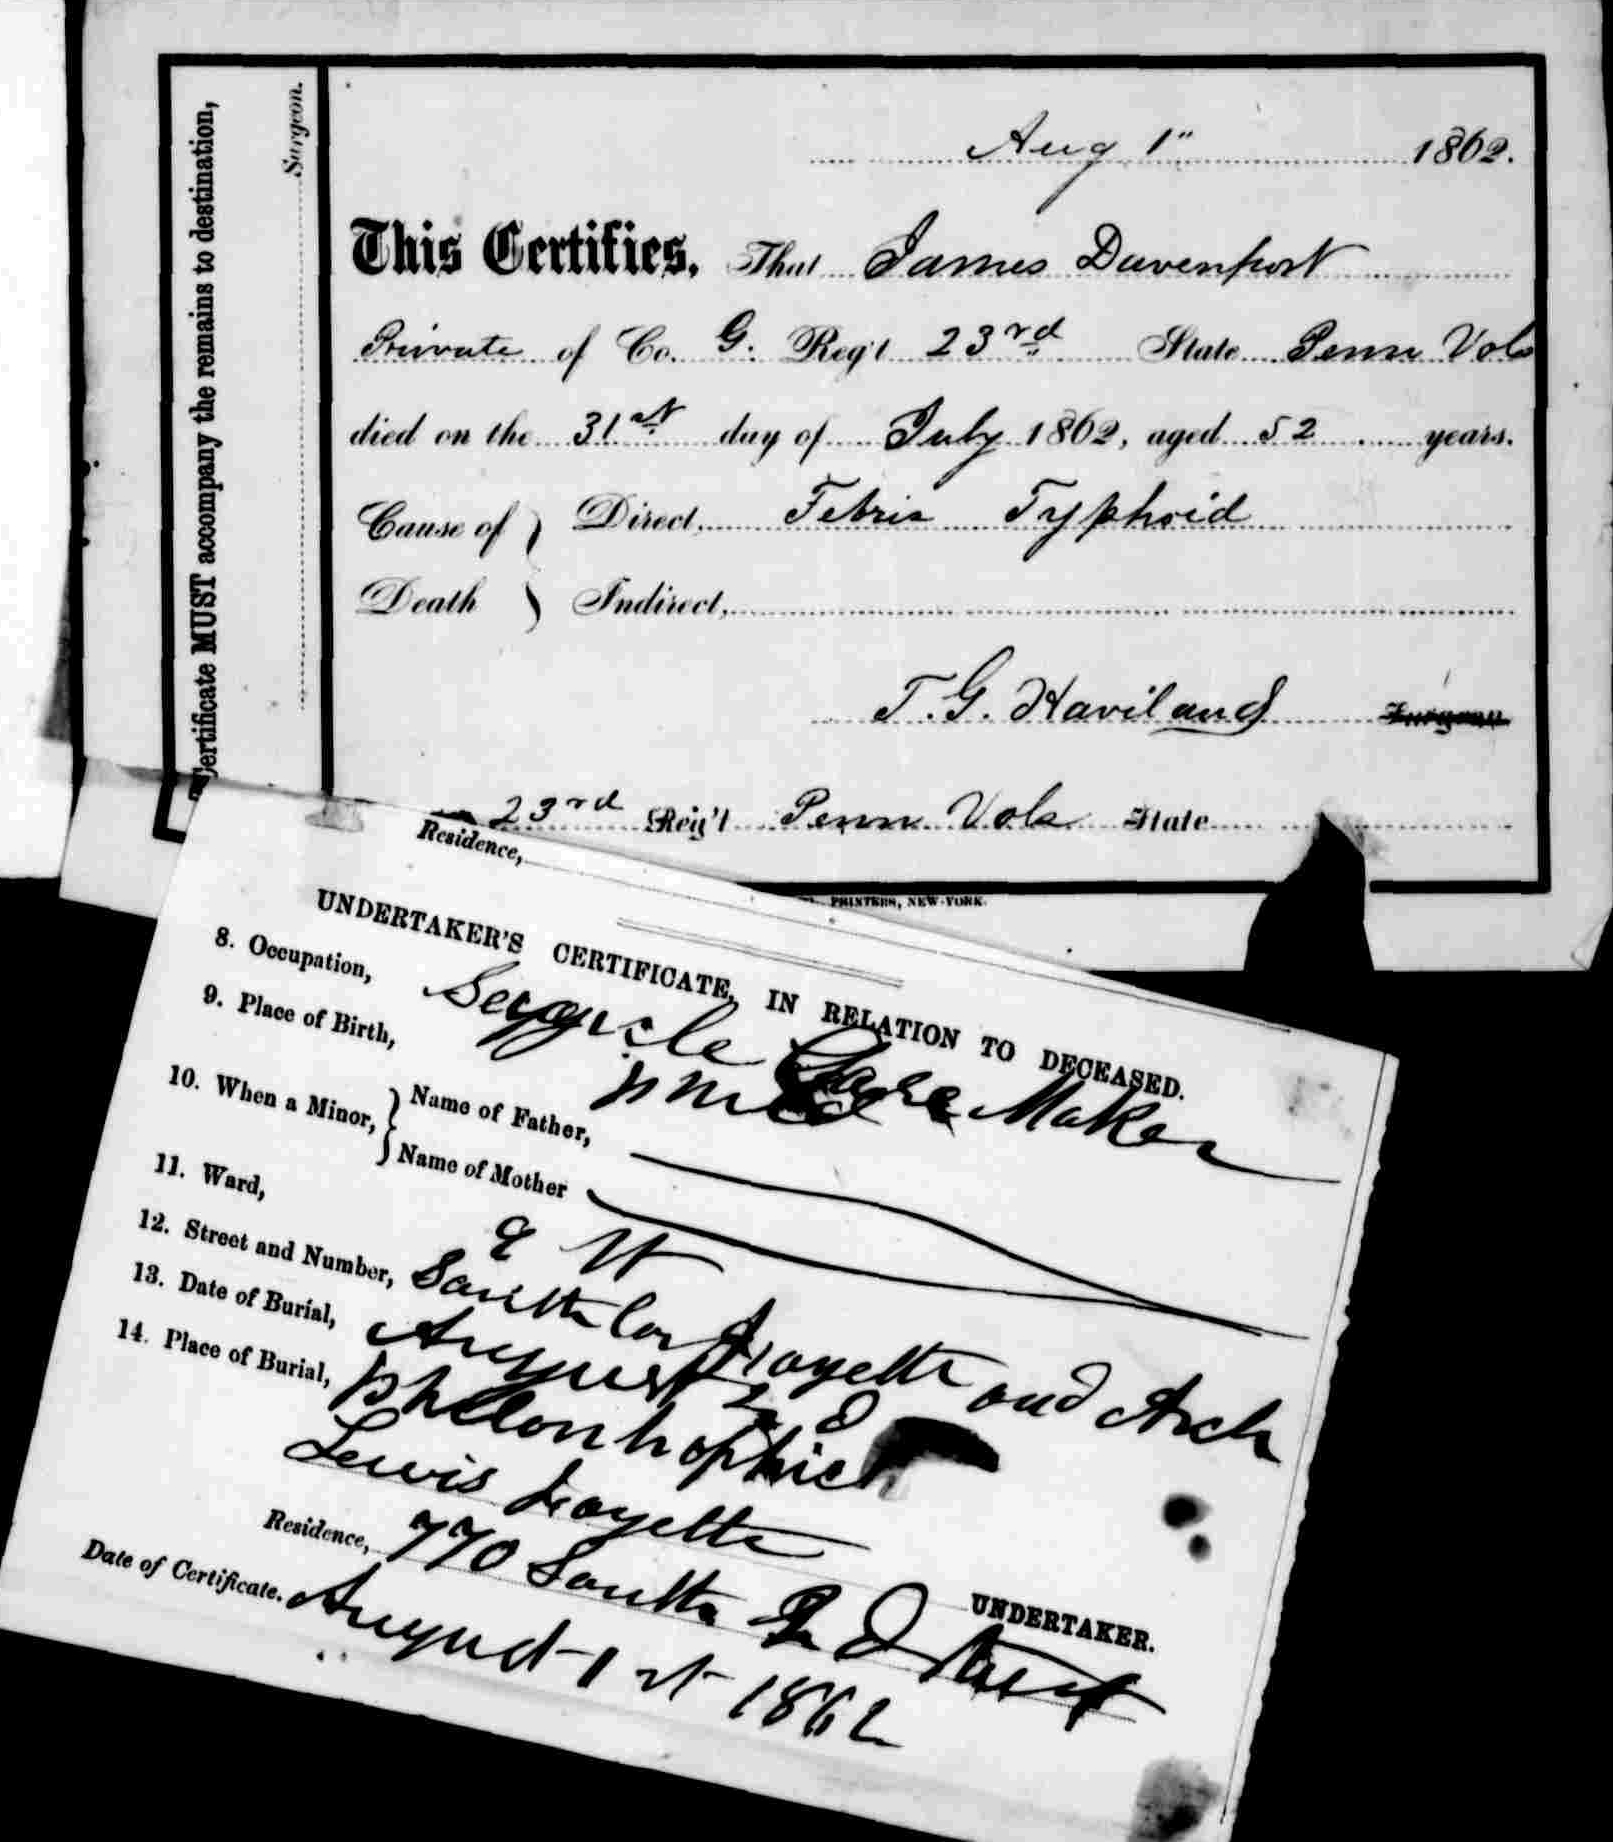 Certificate MUST accompany the remains to destination,
Surgeon.
Aug 1" 1862.
This Certifies, That James Davenport
Private of Co. G. Reg't 23rd State Penn Vols
died on the 31st day of July 1862, aged 52 years.
Cause of Death } Direct, Febris Typhoid
Indirect,
T. G. Haviland Surgeon
23rd Reg't Penn Vols State
PRINTERS, NEW-YORK.
Residence,
UNDERTAKER'S CERTIFICATE, IN RELATION TO DECEASED.
8. Occupation, Maker
9. Place of Birth,
10. When a Minor, } Name of Father,
Name of Mother
11. Ward, 9 W
12. Street and Number, South Cor and Arch
13. Date of Burial, August 2d
14. Place of Burial,
Lewis
UNDERTAKER.
Residence, 770 South 2d Street
Date of Certificate. August 1st 1862